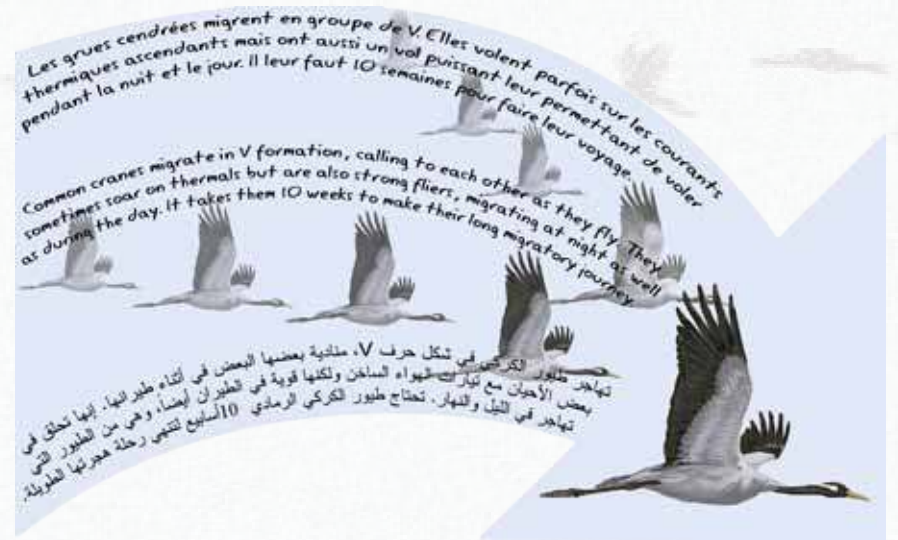 Les grues cendrées migrent en groupe de V. Elles volent parfois sur les courants
thermiques ascendants mais ont aussi un vol puissant leur permettant de voler
pendant la nuit et le jour. Il leur faut 10 semaines pour faire leur voyage.
Common cranes migrate in V formation, calling to each other as they fly. They
sometimes soar on thermals but are also strong fliers, migrating at night as well
as during the day. It takes them 10 weeks to make their long migratory journey
تهاجر طيور الكركي في شكل حرف V، منادية بعضها البعض في أثناء طيرانها. إنها تحلق في
بعض الأحيان مع تيارات الهواء الساخن ولكنها قوية في الطيران أيضاً، وهي من الطيور التي
تهاجر في الليل والنهار. تحتاج طيور الكركي الرمادي 10أسابيع لتنهي رحلة هجرتها الطويلة.